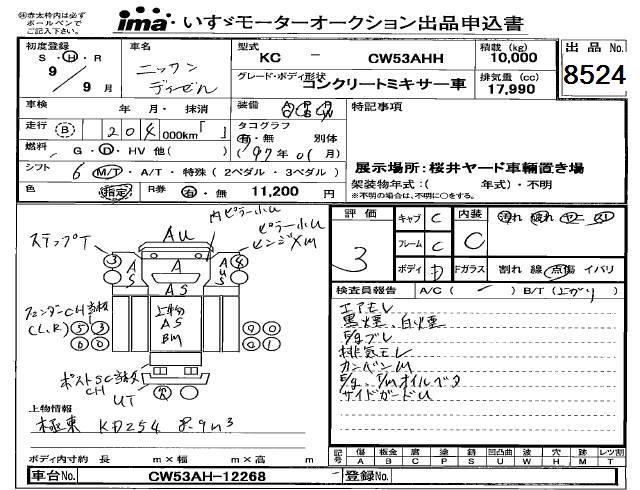 ㊟赤太枠は必ず
ボールペンで
ご記入下さい。
ima いすゞモーターオークション出品申込書
初度登録
S・H・R
9年 9月
車名
ニッサン
ディーゼル
型式
KC - CW53AHH
グレード・ボディ形状
コンクリートミキサー車
積載 (kg)
10,000
排気量 (cc)
17,990
出品 No.
8524
車検 年 月・抹消
装備 A/C P/S P/W
特記事項
走行 (B) 204 000km「 」
タコグラフ
有・無 別体
(97年01月)
燃料 G・D・HV 他( )
シフト 6 M/T・A/T・特殊(2ペダル・3ペダル)
色 指定 R券 有・無 11,200 円
展示場所:桜井ヤード車輌置き場
架装物年式:( 年式)・不明
※不明の場合は、不明に○をする。
ステップT
AU
内ピラー小U
ピラー小U
ヒンジXM
A
A
S
A
U
S
A S
上物
A S
BM
フェンダーCH
(L,R)
ポストSC
CH
UT
上物情報
極東 KD254 8.9m3
ボディ内寸約 長 m×幅 m×高 m
車台No. CW53AH-12268
登録No.
評価
3
キャブ C
フレーム C
ボディ D
内装
C
汚れ 破れ ヤニ スレ
Fガラス 割れ 線 点傷 イバリ
検査員報告 A/C ( - ) B/T (上がり)
エアモレ
黒煙、白煙
E/gブレ
排気モレ
カンバンM
E/g、T/mオイルベタ
サイドガードU
記号
傷 板金 腐 塗 錆 凹凸曲 波 穴 外 レツ割
A B C P S U W H M T